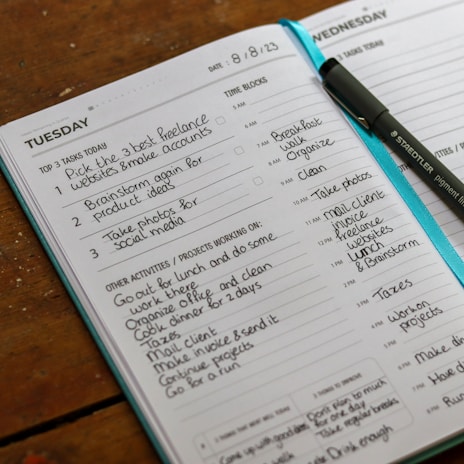 DATE: 8/8/23
TUESDAY
TOP 3 TASKS TODAY
1 Pick the 3 best freelance
websites & make accounts
2 Brainstorm again for
product ideas
3 Take photos for
social media
OTHER ACTIVITIES / PROJECTS WORKING ON:
Go out for lunch and do some
work there
Organize office and clean
Cook dinner for 2 days
Taxes
Mail client
Make invoice & send it
Continue projects
Go for a run
3 THINGS THAT WENT WELL TODAY
Come up with good ideas
3 THINGS TO IMPROVE
Don't plan to much
for one day
Take regular breaks
Drink enough
TIME BLOCKS
5 AM
6 AM
7 AM Breakfast
walk
8 AM Organize
9 AM clean
10 AM Take photos
11 AM mail client
invoice
12 PM freelance
websites
1 PM Lunch
& Brainstorm
2 PM
3 PM Taxes
4 PM Work on
projects
5 PM
6 PM Make
7 PM
8 PM
WEDNESDAY
3 TASKS TODAY
STAEDTLER
pigment